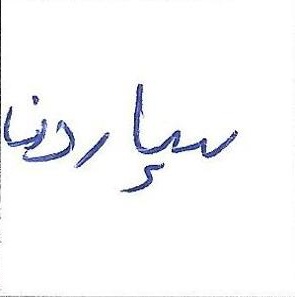 سپاردنا